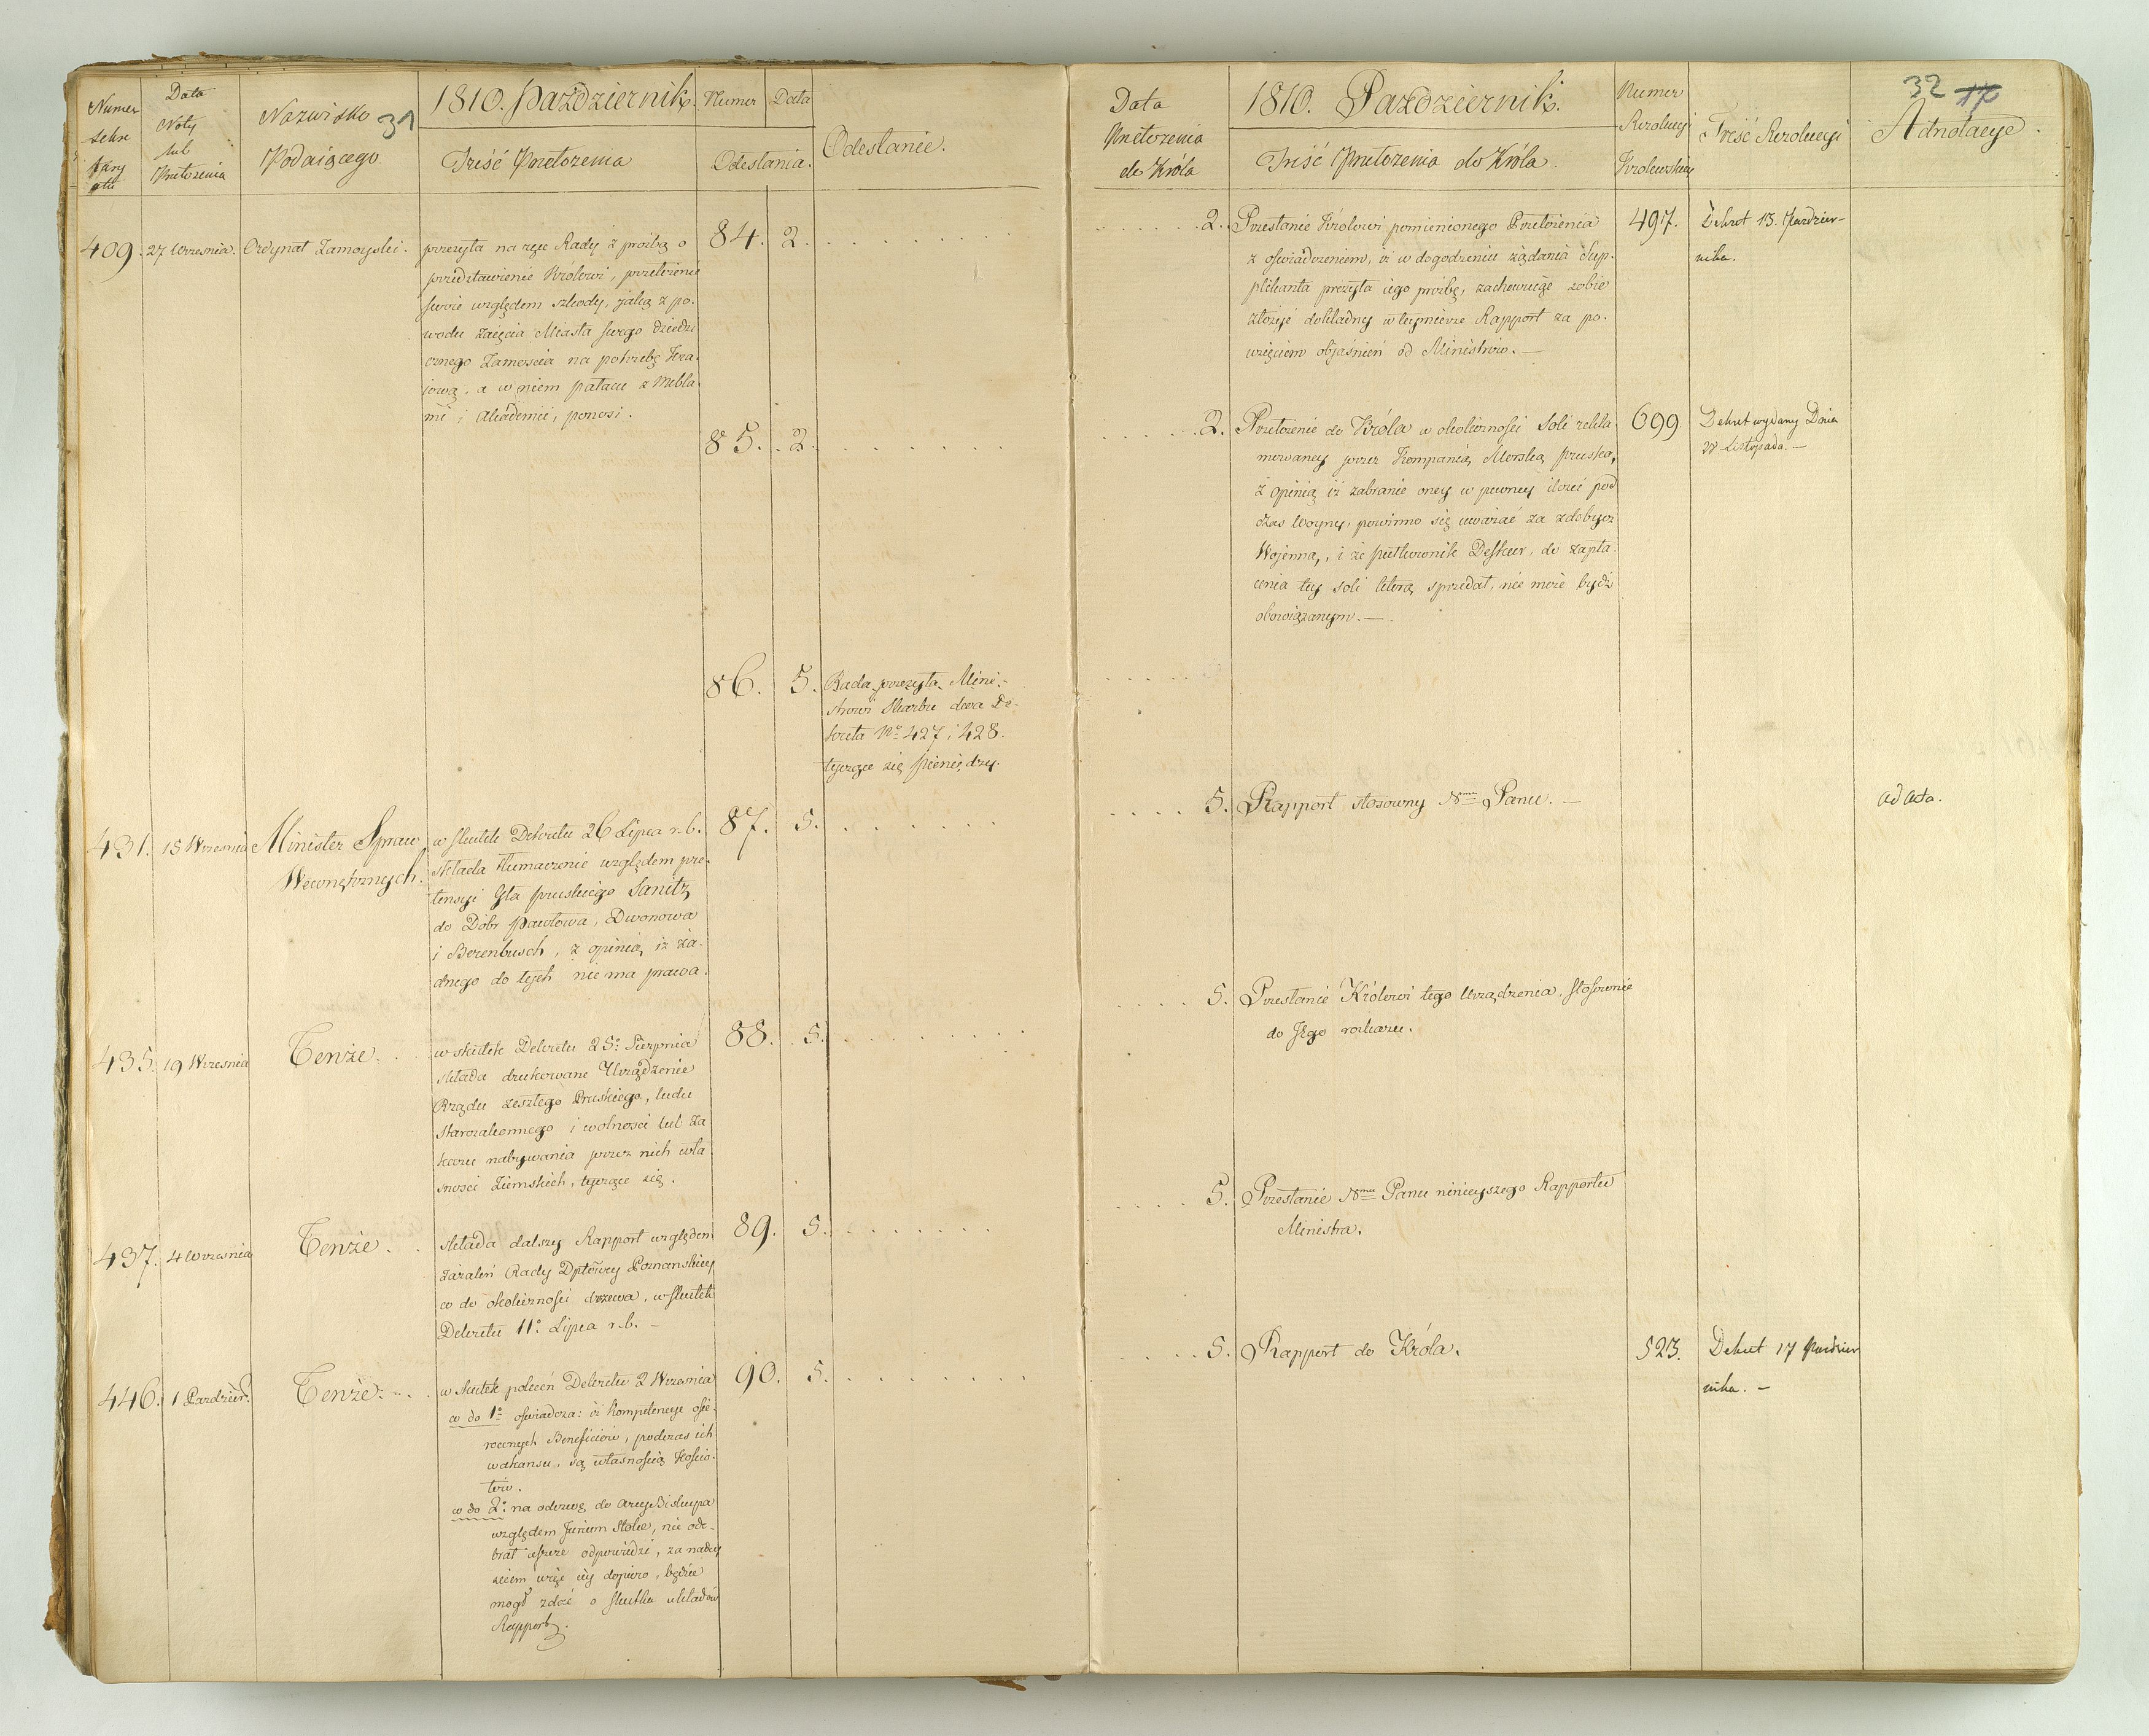 Numer
Sekre
tary
atu
Data
Noty
lub
Przełożenia
Nazwisko
Podaiącego
31
1810. Październik.
Treść Przełożenia
Numer
Data
Odesłania.
Odesłanie.
409. 27 Września. Ordynat Zamoyski.
przesyła na ręce Rady z prośbą o
przedstawienie Królowi, przełożenie
swoie względem szkody, jaką z po-
wodu zaięcia Miasta swego dziedzi
cznego Zamościa na potrzebę Kra-
jową, a w niem pałacu z Mebla-
mi i Akademii, ponosi.
84. 2. . . . . . . . .
85. 2. . . . . . . . .
86. 5. Rada przesyła Mini-
strowi Skarbu dwa De-
kreta No 427 i 428.
tyczące się pieniędzy.
431. 15 Września Minister Spraw
Wewnętrznych.
w skutek Dekretu 26 Lipca r. b.
składa tłumaczenie względem pre-
tensyi Gła pruskiego Sanitz
do Dóbr Pawłowa, Dwonowa
i Berenbusch, z opinią iż ża-
dnego do tych nie ma prawa.
87. 5. . . . . . . .
435. 19 Września Tenże. . .
w skutek Dekretu 25o Sierpnia
składa drukowane Urządzenie
Rządu zeszłego Pruskiego, ludu
starozakonnego i wolności lub za
kazu nabywania przez nich wła
sności Ziemskich, tyczące się.
88. 5. . . . . . . . .
437. 4 Września Tenże. . .
składa dalszy Rapport względem
zażaleń Rady Dptowey Poznanskiey
co do okoliczności drzewa, w skutek
Dekretu 11o Lipca r. b. –
89. 5. . . . . . . .
446. 1 Paździer. Tenże. . . .
w skutek poleceń Dekretu 2 Września
co do 1o oświadcza: iż kompetencye osie-
roconych Beneficiów, podczas ich
wakansu, są własnością Kościo-
łów.
co do 2o na odezwę do ArcyBiskupa
względem Jurium Stolæ, nie ode-
brał ieszcze odpowiedzi, za nadey
ściem więc iey dopiero, będzie
mógł zdać o skutku układów
Rapport.
90. 5. . . . . . . . .
Data
Przełożenia
do Króla
1810. Październik.
Treść Przełożenia do Króla.
Numer
Rezolucyi
Królewskiey
Treść Rezolucyi
32 17
Adnotacye.
. . . . . . 2. Przesłanie Królowi pomienionego Przełożenia
z oświadczeniem, iż w dogodzeniu żądania Sup-
plikanta przesyła iego prośbę, zachowuiąc sobie
złożyć dokładny w tey mierze Rapport za po-
wzięciem objaśnień od Ministrów. –
497. Dekret 13. Paździer-
nika.
. . . . . . 2. Przełożenie do Króla w okoliczności Soli rekla-
mowaney przez Kompanią Morską pruską,
z opinią iż zabranie oney w pewney ilości pod
czas Woyny, powinno się uważać za zdobycz
Wojenną, i że pułkownik Deskur, do zapła-
cenia tey soli którą sprzedał, nie może bydź
obowiązanym. –
699. Dekret wydany Dnia
28 Listopada. –
. . . . .
. . . . 5. Rapport stosowny Nmu Panu. –
ad acta.
. . . . 5. Przesłanie Królowi tego Urządzenia, stosownie
do Jego rozkazu.
. . . . 5. Przesłanie Nmu Panu ninieyszego Rapportu
Ministra.
. . . 5. Rapport do Króla.
523. Dekret 17 Paździer
nika. –